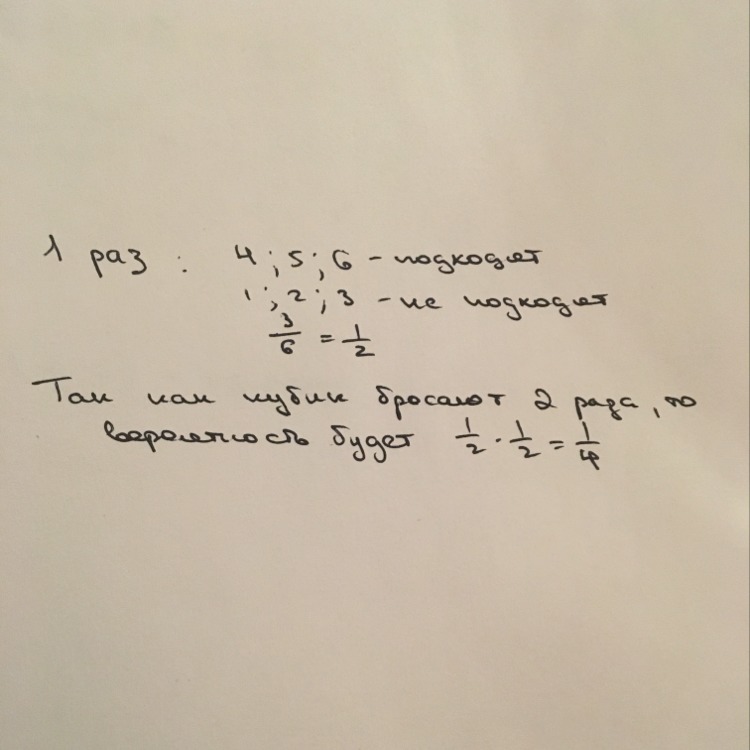 1 раз : 4 ; 5 ; 6 - подходят
1 ; 2 ; 3 - не подходят
3/6 = 1/2
Так как кубик бросают 2 раза, то
вероятность будет 1/2 · 1/2 = 1/4